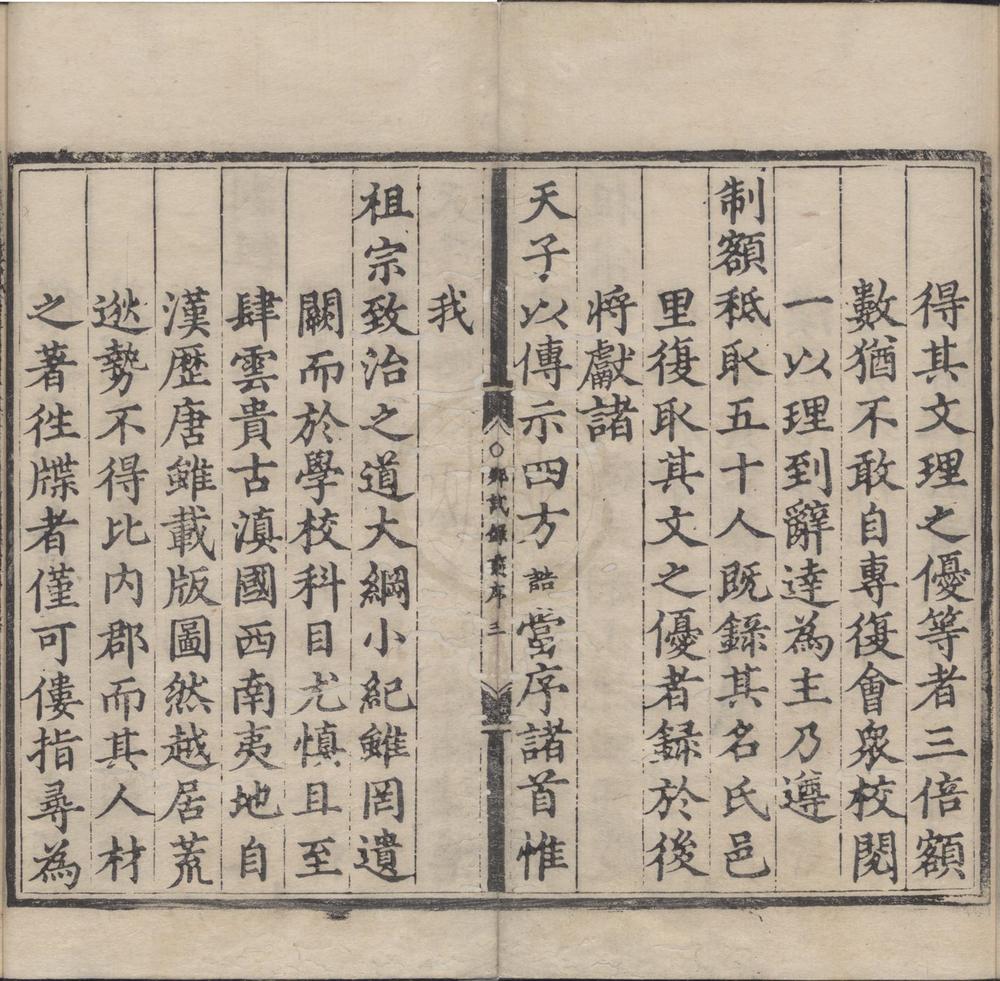 得其文理之優等者三倍額
數猶不敢自專復會衆校閱
一以理到辭達為主乃遵
制額秪取五十人既録其名氏邑
里復取其文之優者録於後
將獻諸
天子以傳示四方誥當序諸首惟
鄉試錄前序 三
我
祖宗致治之道大綱小紀雖罔遺
闕而於學校科目尤慎且至
肆雲貴古滇國西南夷地自
漢歷唐雖載版圖然越居荒
逖勢不得比内郡而其人材
之著徃牒者僅可僂指尋為